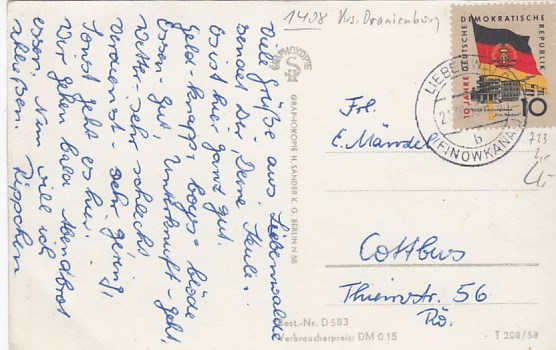 1408 Krs. Oranienburg
Viele Grüße aus Liebenwalde
sendet Dir, Deine Keule.
Es ist hier ganz gut.
Geld - knapp, boys - blöde
Essen - gut, Unterkunft - geht,
Wetter - sehr schlecht
Vorrat - sehr gering,
Sonst geht es hier.
Wir gehen bald Abendbrot
essen. Nun will ich
schließen.
GRAPHOKOPIE
GRAPHOKOPIE H. SANDER K. G. BERLIN N 58
10 JAHRE DEUTSCHE DEMOKRATISCHE REPUBLIK
10
LIEBENWALDE
b
(FINOWKANAL)
723
Frl.
E. Mändel
Cottbus
Thiemstr. 56
Best.-Nr. D 583
Verbraucherpreis: DM 0.15
T 208/58